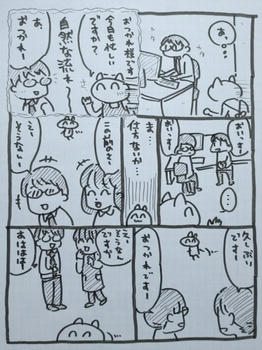 あ。。。
おつかれ様です
今日も忙しい
ですか?
自然な流れー
あ、
おつかれー
おいーす。
おいーす。
…
ま…
仕方ないか…
この前のさ〜
えー
そうなんー
久しぶり
ですー
おつかれですー
…
えー
そうなん
ですか
あははは